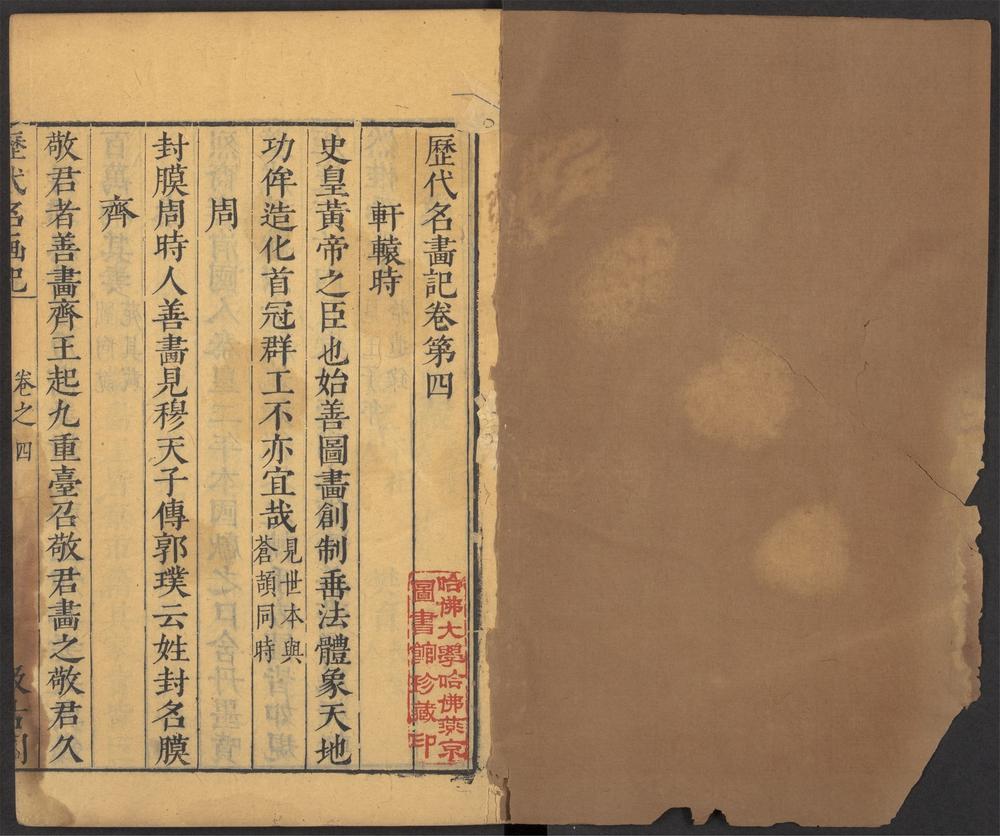 歷代名畵記卷第四
軒轅時
史皇黃帝之臣也始善圖畵創制垂法體象天地
功侔造化首冠群工不亦宜哉見世本與蒼頡同時
周
封膜周時人善畵見穆天子傳郭璞云姓封名膜
齊
敬君者善畵齊王起九重臺召敬君畵之敬君久
歷代名畫記 卷之四
哈佛大學哈佛燕京
圖書館珍藏印